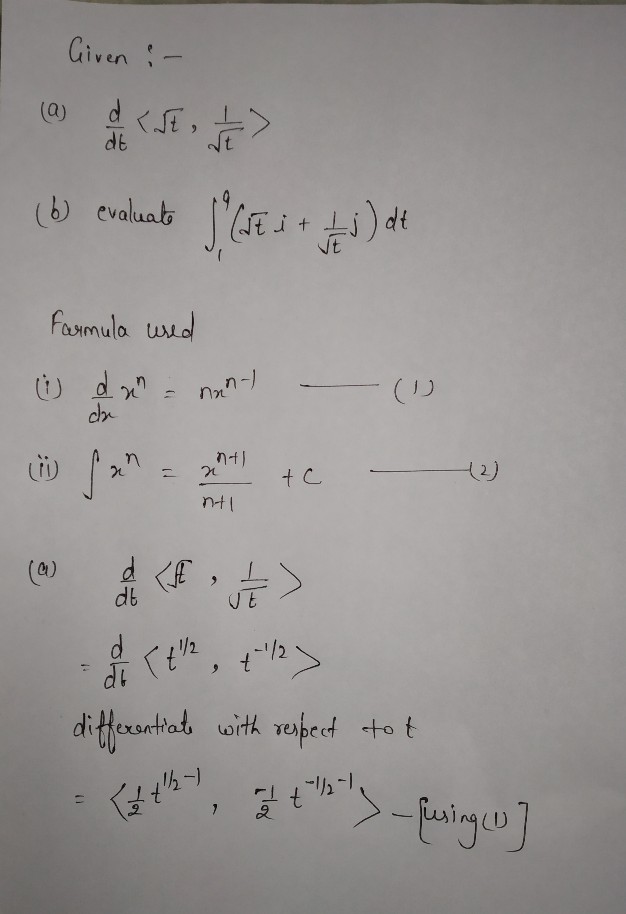 Given :-
(a) d/dt <√t, 1/√t>
(b) evaluate ∫₁⁹ (√t i + 1/√t j) dt
Farmula used
(i) d/dx xⁿ = nxⁿ⁻¹ —— (1)
(ii) ∫ xⁿ = xⁿ⁺¹/n+1 + c —— (2)
(a) d/dt <√t, 1/√t>
= d/dt <t^1/2, t^-1/2>
differentiate with respect to t
= <1/2 t^1/2-1, -1/2 t^-1/2-1> - [using (1)]